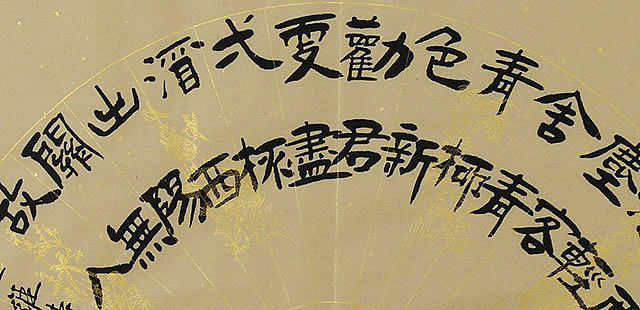 雨
輕
塵客
舍青
青柳
色新
勸君
更盡
弌杯
酒西
出陽
關無
故人